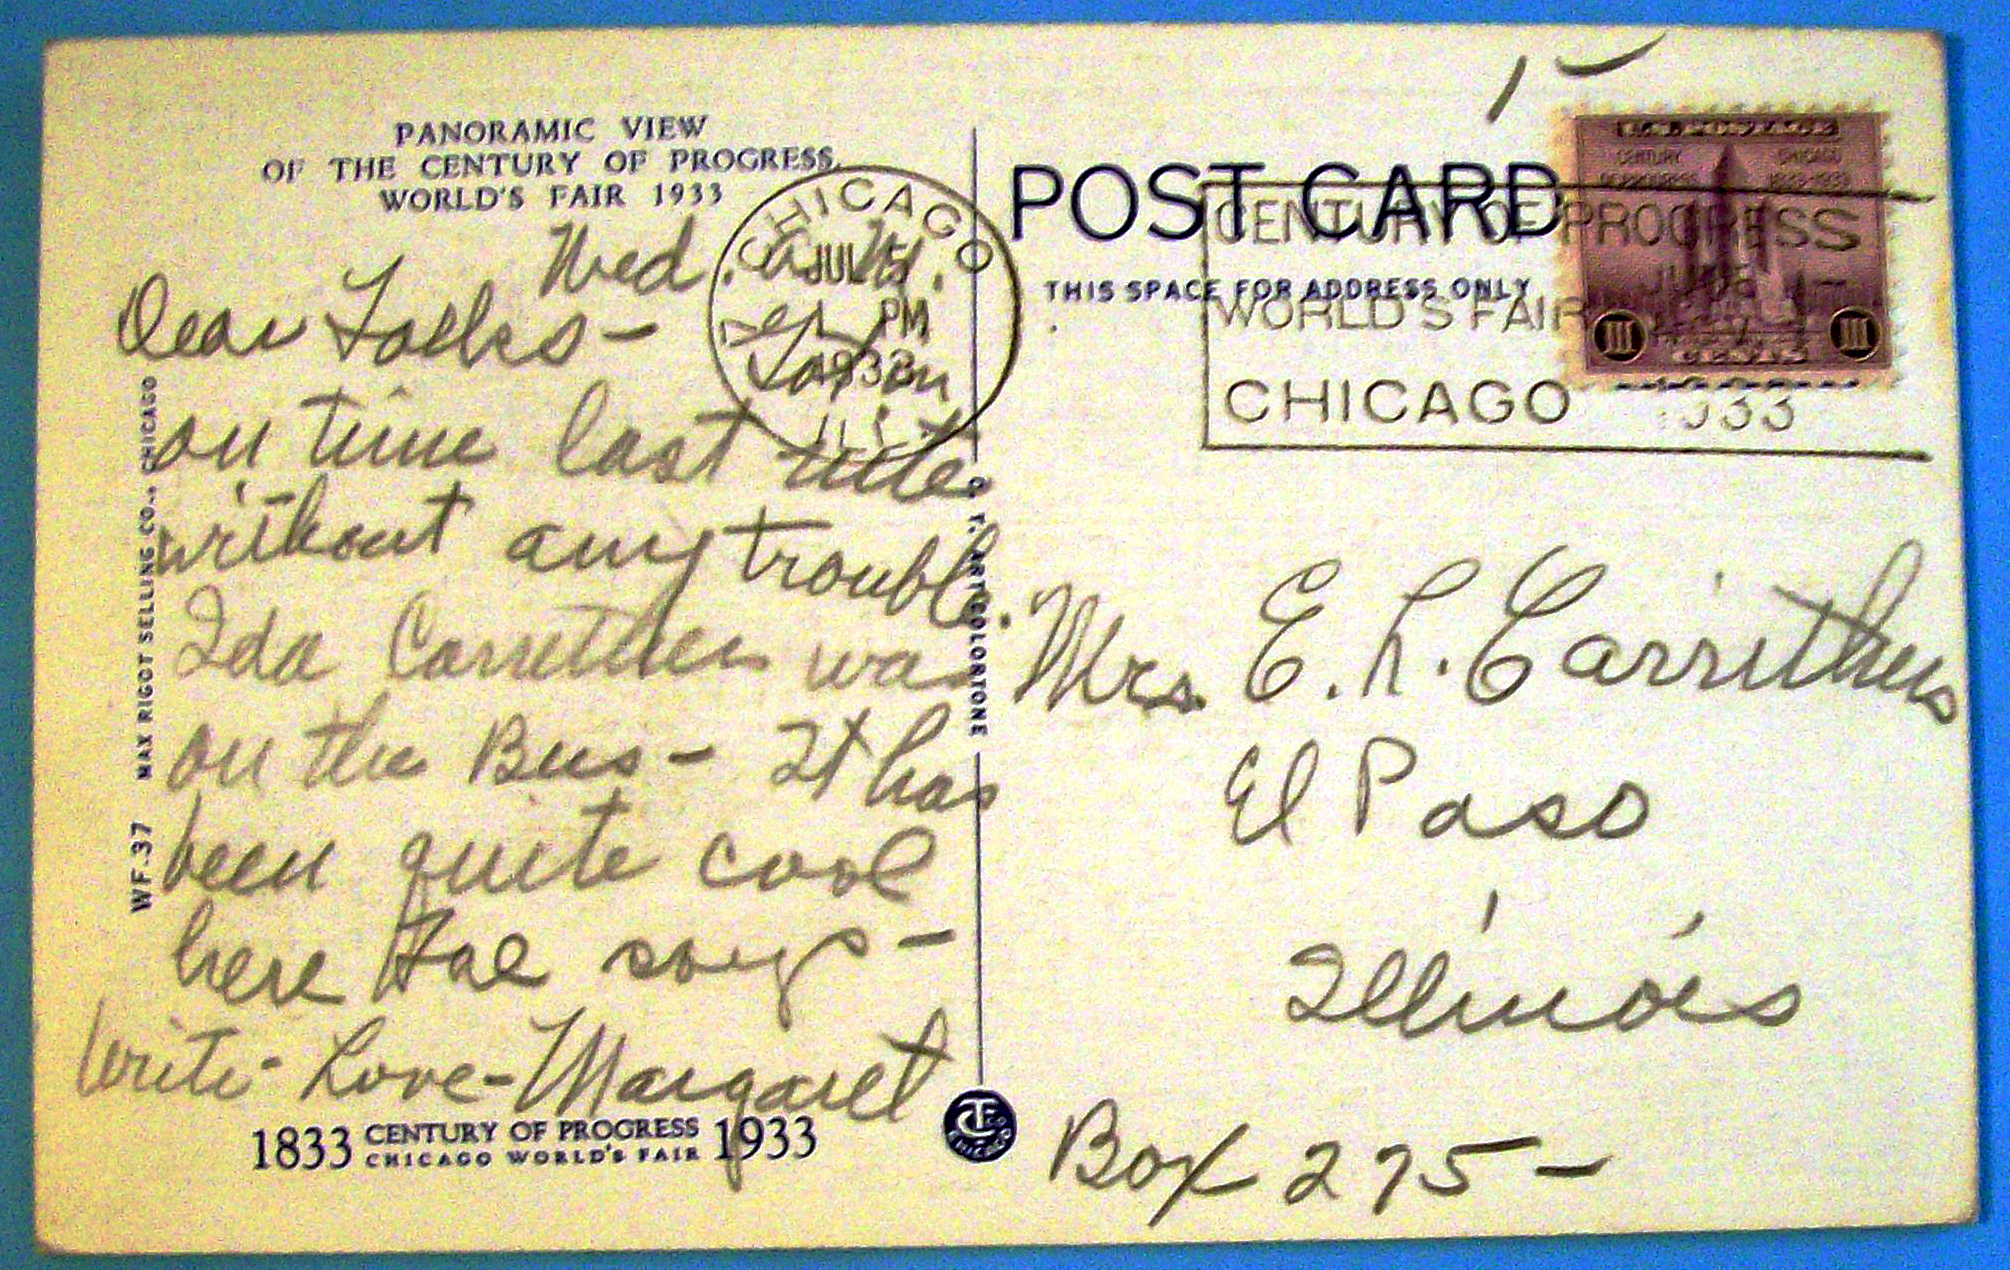 PANORAMIC VIEW
OF THE CENTURY OF PROGRESS,
WORLD'S FAIR 1933
Wed. a.m.
Dear Folks -
on time last nite
without any trouble.
Ida Carrithers was
on the Bus - It has
been quite cool
here Hal says -
Write - Love - Margaret
1833 CENTURY OF PROGRESS 1933
CHICAGO WORLD'S FAIR
WF.37 MAX RIGOT SELLING CO., CHICAGO
C.T. ART COLORTONE
CHICAGO
JUL 5
PM
1933
ILL.
1 -
POST CARD
THIS SPACE FOR ADDRESS ONLY
CENTURY OF PROGRESS
JUNE 1 -
WORLD'S FAIR
CHICAGO 1933
U.S. POSTAGE
CENTURY CHICAGO
OF PROGRESS 1833-1933
III III
CENTS
Mrs. E. L. Carrithers
El Paso
Illinois
Box 275 -